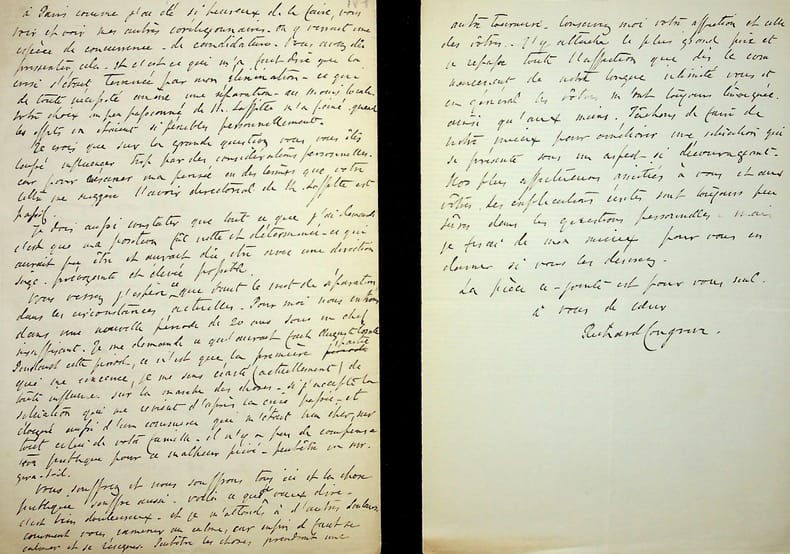 à Paris comme j'ai été si heureux de le faire, vous
voir et voir mes autres coreligionnaires. On y verrait une
espèce de concurrence - de candidature. Vous avez dû
pressentir cela - et c'est ce qui m'a fait dire que la
crise s'étant terminée par mon élimination - ce que
de toute nécessité amène une séparation - au moins locale.
Votre choix un peu passionné de M. Laffitte m'a peiné, quand
les effets en étaient si pénibles personnellement.
Je crois que sur la grande question vous vous êtes
laissé influencer trop par des considérations personnelles.
car pour résumer ma pensée en des termes que votre
lettre me suggère l'avoir directorial de M. Laffitte est
passif.
Je dois aussi constater que tout ce que j'ai demandé
c'est que ma position fût nette et déterminée - ce qui
aurait pu être et aurait dû être avec une direction
sage, prévoyante et élevée possible.
Vous verrez j'espère ce que vaut le mot de séparation
dans les circonstances actuelles. Pour moi nous entrons
dans une nouvelle période de 20 ans sous un chef
insuffisant. Je me demande ce qu'aurait fait Auguste Comte
Pendant cette période, ce n'est que la première partie
qui me concerne, je me sens écarté (actuellement) de
toute influence sur la marche des choses - si j'accepte la
situation qui me revient d'après la crise passée - et
éloigné aussi d'un commerce qui m'était bien cher, sur
tout celui de votre famille - il n'y a pas de compensa
tion publique pour ce malheur privé - peut-être en sur
gira-t-il.
Vous souffrez et nous souffrons tous ici et la chose
publique souffre aussi. voilà ce que je veux dire -
c'est bien douloureux - et je m'attends à d'autres douleurs
comment vous ramener au calme, car enfin il faut se
calmer et se résigner. Peut-être les choses prendront une
autre tournure. Conservez moi votre affection et celle
des vôtres. J'y attache le plus grand prix et
je repose toute l'affection que dès le com
mencement de notre longue intimité vous et
en général les vôtres m'ont toujours témoignée.
ainsi qu'aux miens. Tâchons de faire de
notre mieux pour améliorer une situation qui
se présente sous un aspect si décourageant.
Nos plus affectueuses amitiés à vous et aux
vôtres. Les explications écrites sont toujours peu
sûres dans les questions personnelles - mais
je ferai de mon mieux pour vous en
donner si vous les désirez.
La pièce ci-jointe est pour vous seul.
à vous de cœur
Richard Congreve.